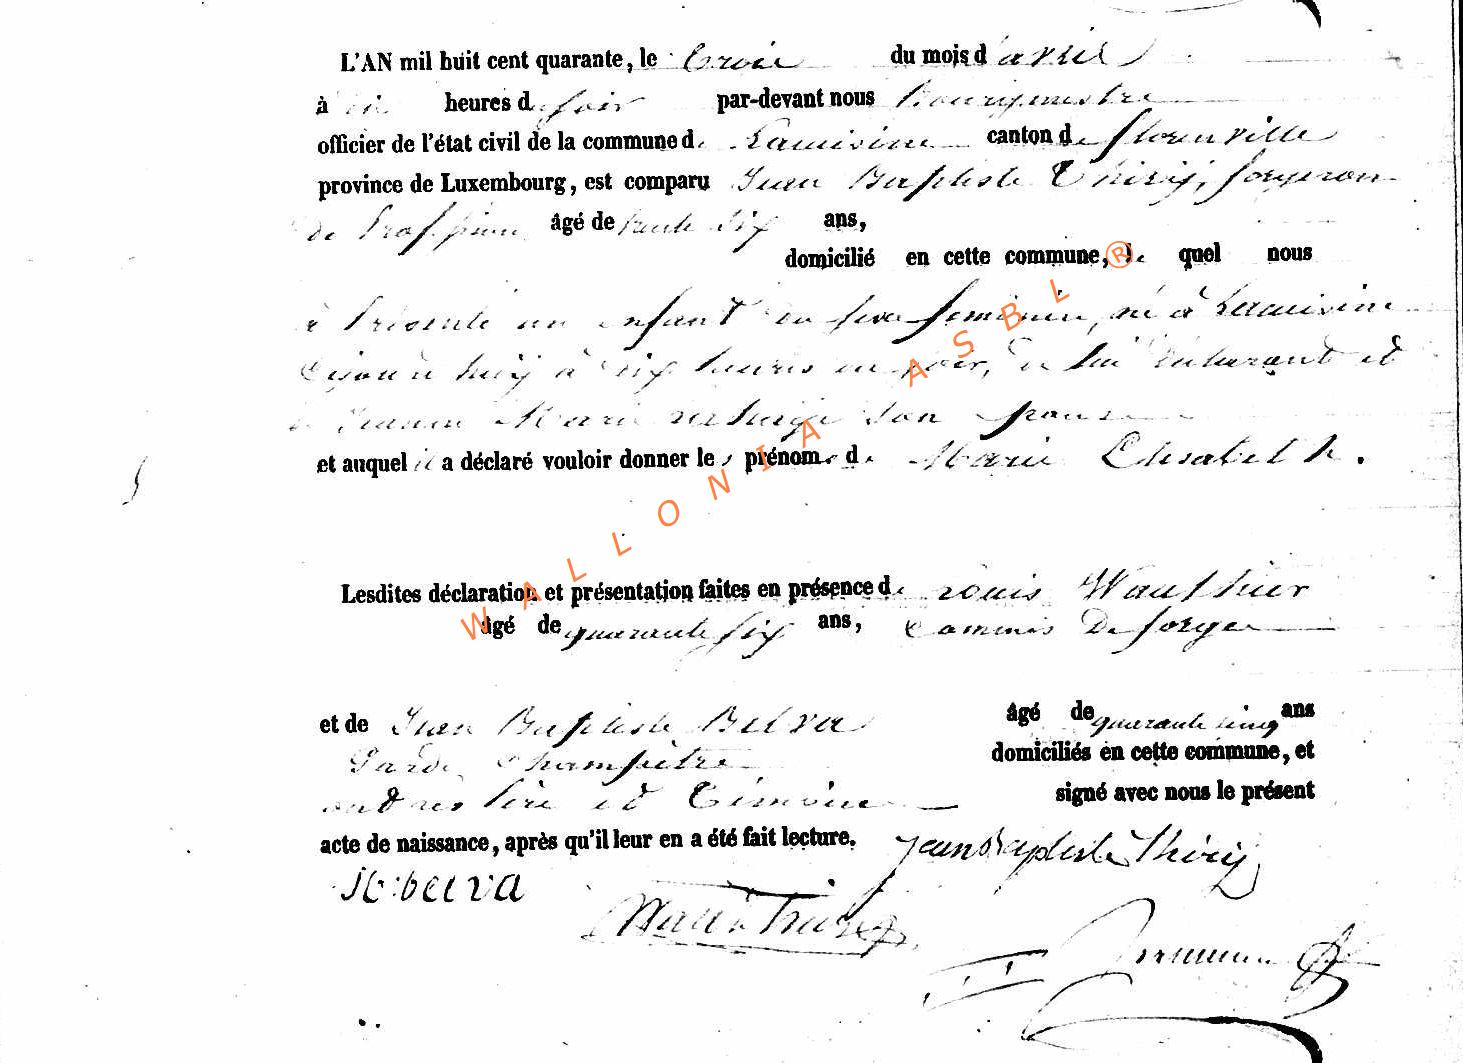 L'AN mil huit cent quarante, le trois du mois d'avril
à six heures du soir par-devant nous Bourgmestre
officier de l'état civil de la commune de Lacuisine canton de florenville
province de Luxembourg, est comparu Jean Baptiste Thiry, forgeron
de Profession âgé de trente six ans,
domicilié en cette commune, le quel nous
à Présenté un enfant du sexe feminin, né à Lacuisine
cejourd'huiy à six heures du soir, de lui déclarant et
de Jeanne Marie son épouse
et auquel il a déclaré vouloir donner les prénoms de Marie Elisabeth.
Lesdites déclaration et présentation faites en présence de Louis Wauthier
âgé de quarante six ans, Commis De forge
et de Jean Baptiste Belva âgé de quarante cinq ans
Garde Champêtre domiciliés en cette commune, et
ont les Père et Témoins signé avec nous le présent
acte de naissance, après qu'il leur en a été fait lecture. Jean Baptiste Thiry
Jb: belva
Wauthier
WALLONIA ASBL®